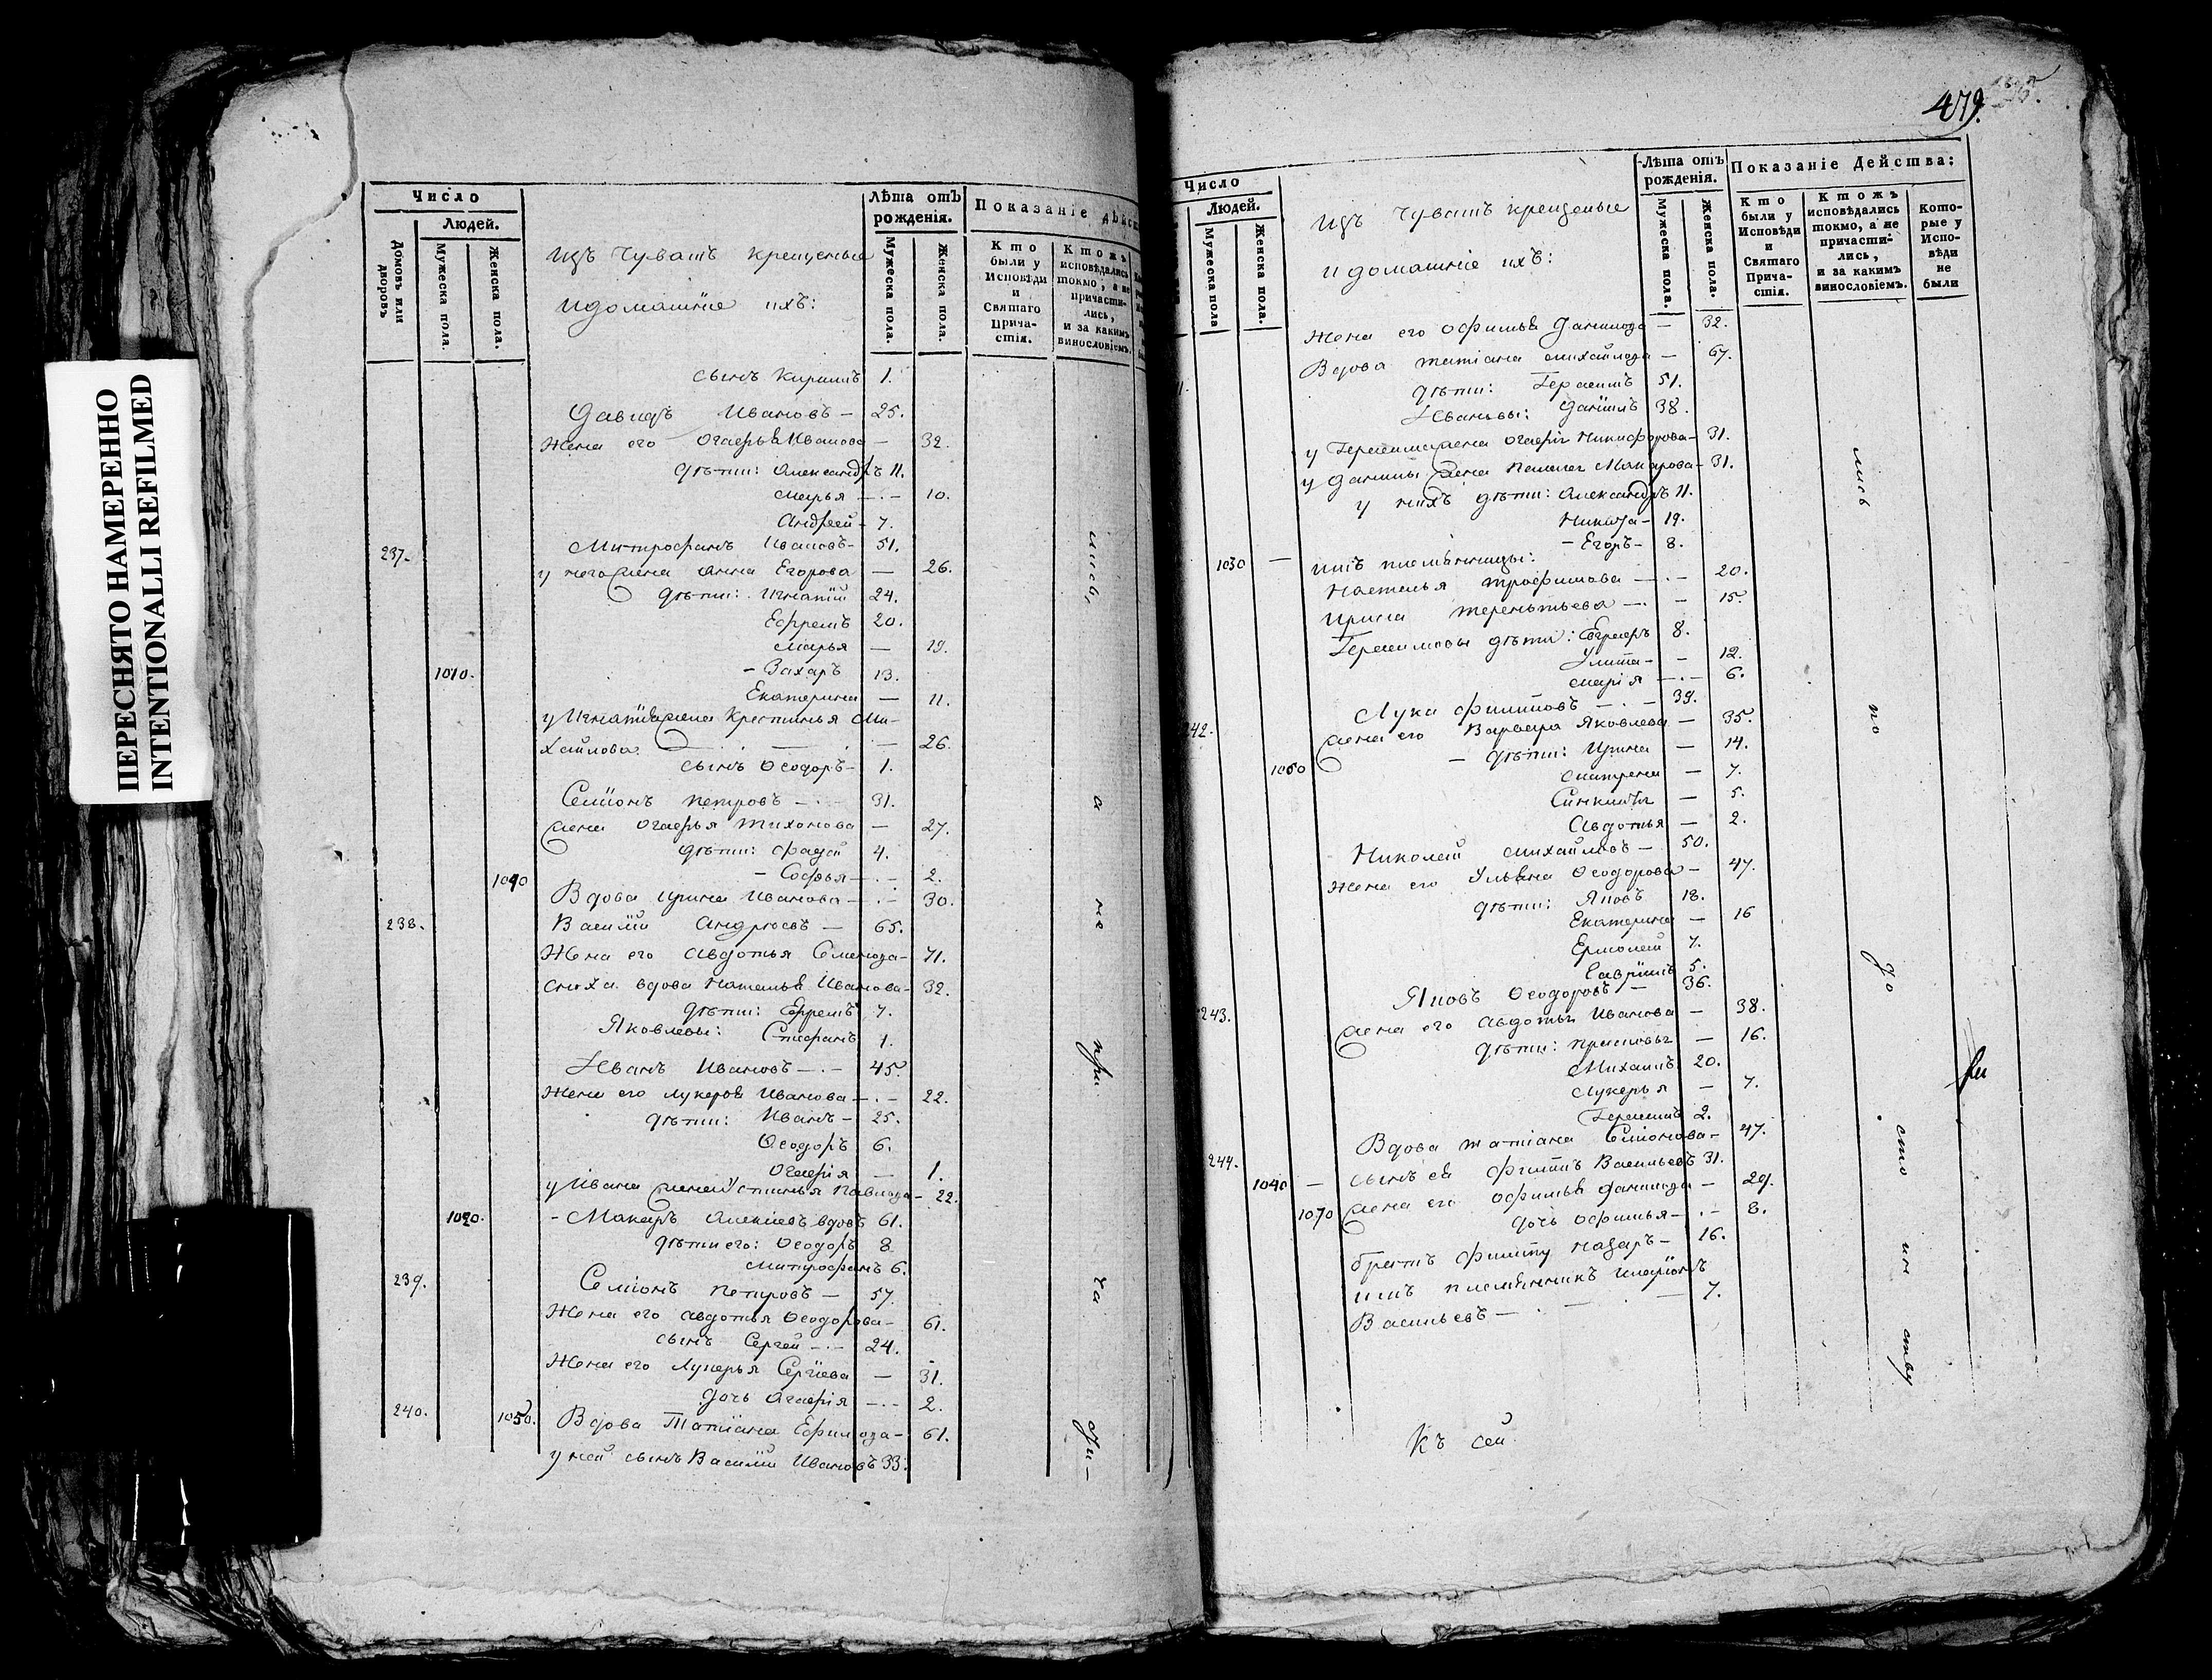 ПЕРЕСНЯТО НАМЕРЕННО
INTENTIONALLI REFILMED
Число
Людей.
Домовъ или дворовъ
Мужеска пола.
Женска пола.
Изъ Чувашъ крещеные
и домашніе ихъ:
Лѣта отъ рожденія.
Мужеска пола.
Женска пола.
Показаніе дѣйс
Кто были у Исповѣди и Святаго Прича-стія.
Ктожъ исповѣдались токмо, а не причасти-лись, и за какимъ винословіемъ.
сынъ Кирилъ 1.
Давидъ Ивановъ — 25.
Жена его Огафья Иванова — 32.
дѣти: Александръ 11.
Марья — 10.
Андрей — 7.
237. Митрофанъ Ивановъ — 51.
у него жена Анна Егорова — 26.
дѣти: Игнатій 24.
Ефремъ 20.
Марья — 19.
1010. — Захаръ 13.
Екатерина — 11.
у Игнатія жена Крестинья Ми-
хайлова — 26.
сынъ Ѳеодоръ — 1.
Семіонъ Петровъ — 31.
жена Огафья Тихонова — 27.
дѣти: Фадей 4.
1040 — Софья — 2.
Вдова Ирина Иванова — 30.
238. Василій Андреевъ — 65.
Жена его Авдотья Семенова — 71.
сноха вдова Наталья Иванова — 32.
дѣти: Ефремъ 7.
Яковлевы: Стефанъ 1.
Иванъ Ивановъ — 45.
Жена его Лукерья Иванова — 22.
дѣти: Иванъ — 25.
Ѳеодоръ 6.
Огафія — 1.
у Ивана жена Устинья Павлова — 22.
1020. — Макаръ Алексіевъ вдовъ 61.
дѣти его: Ѳеодоръ 8.
Митрофанъ 6.
239. Семіонъ Петровъ — 57.
Жена его Авдотья Ѳеодорова — 61.
сынъ Сергей — 24.
Жена его Лукерья Сергіева — 31.
дочь Агафія — 2.
240. 1050. Вдова Татіана Ефимова — 61.
у ней сынъ Василій Ивановъ 33.
лись,
а
не
при
ча
сти —
479.
Число
Людей.
Мужеска пола
Женска пола.
Изъ Чувашъ крещеные
и домашніе ихъ:
Лѣта отъ рожденія.
Мужеска пола.
Женска пола.
Показаніе Дейсшва:
Кто были у Исповѣди и Святаго Прича-стія.
Ктожъ исповѣдались токмо, а не причасти-лись, и за какимъ винословіемъ.
Кото-рые у Испо-вѣди не были
Жена его Офимья Данилова — 32.
Вдова Татіана Михайлова — 67.
дѣти: Герасимъ 51.
Ивановы: Данилъ 38.
у Герасима жена Огафія Никифорова — 31.
у Данилы жена Пелагея Макарова — 31.
у нихъ дѣти: Александръ 11.
Никита — 19.
— Егоръ — 8.
1030 — имъ племянницы:
Настасья Трофимова — 20.
Ирина Терентьева — 15.
Герасимовы дѣти: Евграфъ 8.
Улита — 12.
Марія — 6.
242. Лука Филиповъ — 39.
жена его Варвара Яковлева — 35.
1060 — дѣти: Ирина — 14.
Матрена — 7.
5.
Авдотья — 2.
Николай Михайловъ — 50.
Жена его Ульяна Ѳеодорова — 47.
дѣти: Яковъ 18.
Екатерина — 16
Ермолай 7.
Гаврилъ 5.
243. Яковъ Ѳеодоровъ — 36.
жена его Авдотья Иванова — 38.
дѣти: Прасковья — 16.
Михаилъ 20.
Лукерья — 7.
Герасимъ 2.
244. Вдова Татіана Семіонова — 47.
1040 — сынъ ея Филипъ Васильевъ 31.
1070 жена его Офимья Данилова — 29.
дочь Офимья — 8.
братъ Филипу Назаръ — 16.
имъ племянникъ Иларіонъ
Васильевъ — 7.
лись
по
до
сто
ин
ству
Къ сей